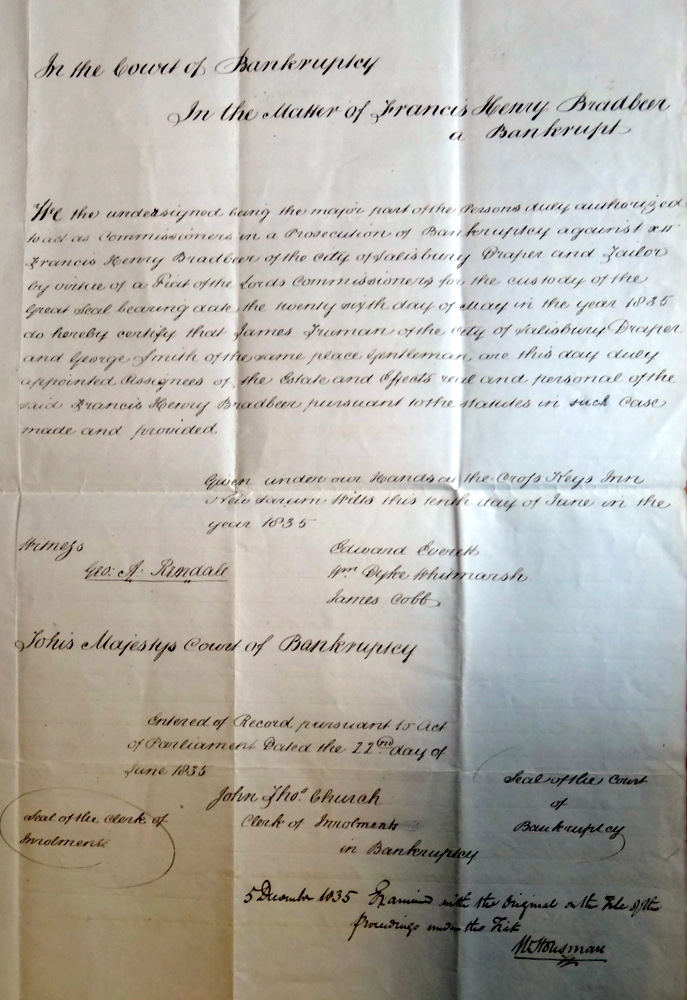 In the Court of Bankruptcy
In the Matter of Francis Henry Bradbeer
a Bankrupt
We the undersigned being the major part of the Persons duly authorized
to act as Commissioners in a Prosecution of Bankruptcy against
Francis Henry Bradbeer of the city of Salisbury Draper and Tailor
by virtue of a Fiat of the Lords Commissioners for the custody of the
Great Seal bearing date the twenty sixth day of May in the year 1835
do hereby certify that James Truman of the city of Salisbury Draper
and George Smith of the same place Gentleman, are this day duly
appointed Assignees of the Estate and Effects real and personal of the
said Francis Henry Bradbeer pursuant to the statutes in such case
made and provided
Given under our Hands a the Cross Keys Inn
New Sarum Wilts this tenth day of June in the
year 1835
Witness
Geo: A. Rendale
Edward Everett
Wm Dyke Whitmarsh
James Cobb
To his Majestys Court of Bankruptcy
Entered of Record pursuant to Act
of Parliament Dated the 22nd day of
June 1835
John Thos. Church
Clerk of Inrolments
in Bankruptcy
Seal of the Clerk of
Inrolments
Seal of the Court
of
Bankruptcy
5 December 1835 Examined with the Original on the File of the
proceedings under this Fiat